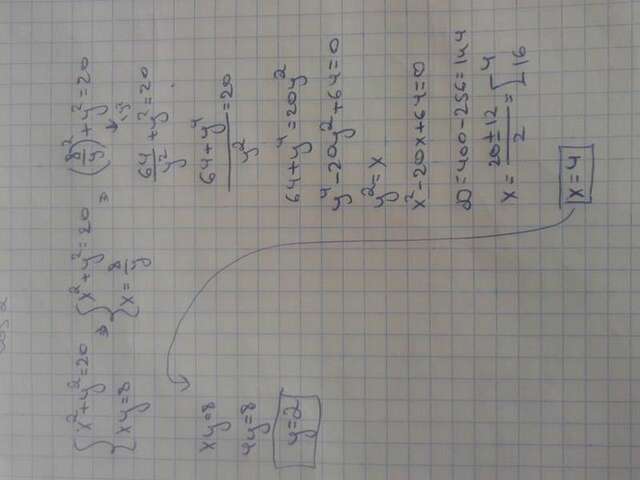 {x²+y²=20
xy=8 ⇒ {x²+y²=20
x=8/y ⇒ (8/y)²+y²=20
64/y²+y²=20
(64+y⁴)/y²=20
64+y⁴=20y²
y⁴-20y²+64=0
y²=x
x²-20x+64=0
D=400-256=144
x=(20±12)/2=[4
16
x=4
xy=8
4y=8
y=2